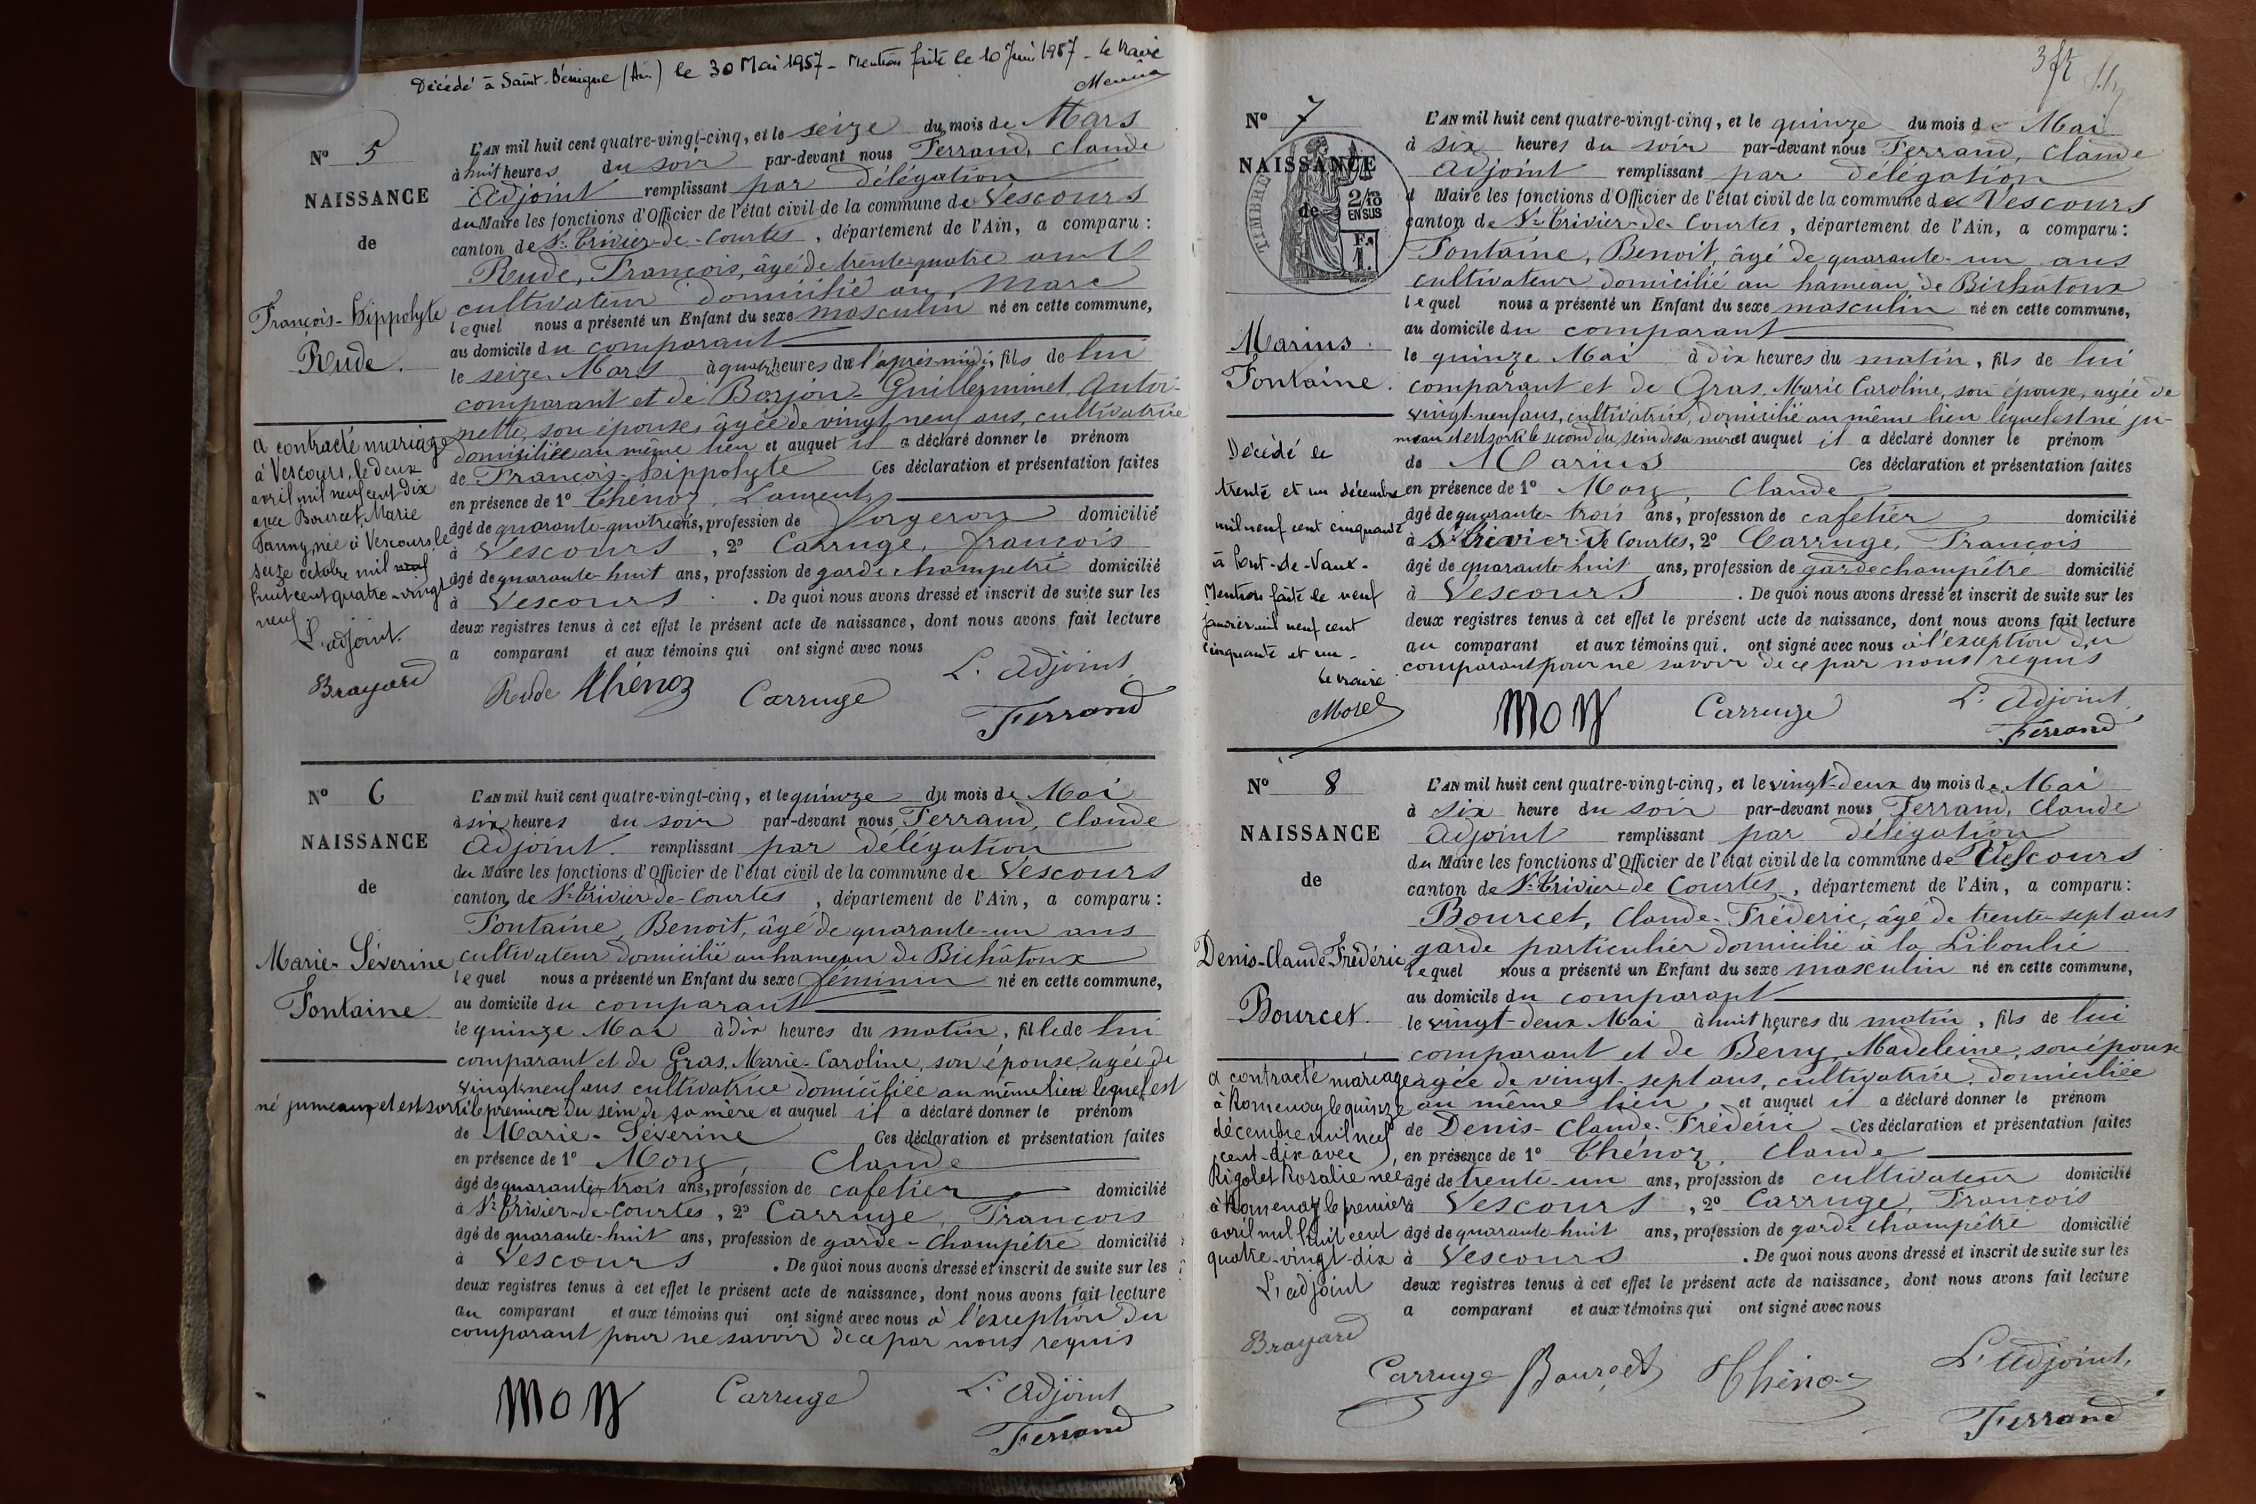 Décédé à Saint-Bénigne (Ain) le 30 Mai 1957 - Mention faite le 10 Juin 1957 - Le Maire
N° 5
NAISSANCE
de
François-Hippolyte
Rude.
a contracté mariage
à Vescours, le deux
avril mil neuf cent dix
avec Bourcet, Marie
Fanny, née à Vescours, le
seize octobre mil neuf
huit cent quatre-vingt
neuf
L'adjoint.
Brayard
L'AN mil huit cent quatre-vingt-cinq, et le seize du mois de Mars
à huit heures du soir par-devant nous Ferrand, Claude
Adjoint remplissant par délégation
du Maire les fonctions d'Officier de l'état civil de la commune de Vescours
canton de St-Trivier-de-Courtes, département de l'Ain, a comparu:
Rude, François, âgé de trente-quatre ans
cultivateur domicilié au Marc
lequel nous a présenté un Enfant du sexe masculin né en cette commune,
au domicile du comparant
le seize Mars à quatre heures de l'après-midi, fils de lui
comparant et de Borjon-Guillerminet, Antoi-
nette, son épouse, âgée de vingt neuf ans, cultivatrice
domiciliée au même lieu et auquel il a déclaré donner le prénom
de François-Hippolyte Ces déclaration et présentation faites
en présence de 1° Thénoz, Laurent,
âgé de quarante-quatre ans, profession de Forgeron domicilié
à Vescours, 2° Carruge, François
âgé de quarante-huit ans, profession de garde champêtre domicilié
à Vescours. De quoi nous avons dressé et inscrit de suite sur les
deux registres tenus à cet effet le présent acte de naissance, dont nous avons fait lecture
a comparant et aux témoins qui ont signé avec nous
Rude Thénoz Carruge L'Adjoint
Ferrand
N° 6
NAISSANCE
de
Marie-Séverine
Fontaine
L'AN mil huit cent quatre-vingt-cinq, et le quinze du mois de Mai
à six heures du soir par-devant nous Ferrand, Claude
Adjoint. remplissant par délégation
du Maire les fonctions d'Officier de l'état civil de la commune de Vescours
canton de St-Trivier-de-Courtes, département de l'Ain, a comparu:
Fontaine, Benoit, âgé de quarante-un ans
cultivateur domicilié au hameau de Bichâtoux
lequel nous a présenté un Enfant du sexe féminin né en cette commune,
au domicile du comparant
le quinze Mai à dix heures du matin, fille de lui
comparant et de Gras, Marie-Caroline, son épouse, agée de
vingt-neuf ans cultivatrice domiciliée au même lieu lequel est
né jumeaux et est sorti le premier du sein de sa mère et auquel il a déclaré donner le prénom
de Marie-Séverine Ces déclaration et présentation faites
en présence de 1° Morg, Claude
âgé de quarante-trois ans, profession de cafetier domicilié
à St-Trivier-de-Courtes, 2° Carruge, François
âgé de quarante-huit ans, profession de garde-champêtre domicilié
à Vescours. De quoi nous avons dressé et inscrit de suite sur les
deux registres tenus à cet effet le présent acte de naissance, dont nous avons fait lecture
au comparant et aux témoins qui ont signé avec nous à l'exception du
comparant pour ne savoir de ce par nous requis
Carruge L'Adjoint
Ferrand
N° 7
NAISSANCE
de
TIMBRE
2/10
EN SUS
Marius
Fontaine.
Décédé le
trente et un décembre
mil neuf cent cinquante
à Pont-de-Vaux.
Mention faite le neuf
janvier mil neuf cent
cinquante et un-
Le Maire
Morel
L'AN mil huit cent quatre-vingt-cinq, et le quinze du mois de Mai
à six heures du soir par-devant nous Ferrand, Claude
Adjoint remplissant par délégation
d Maire les fonctions d'Officier de l'état civil de la commune de Vescours
canton de St-Trivier-de-Courtes, département de l'Ain, a comparu:
Fontaine, Benoit, âgé de quarante-un ans
cultivateur domicilié au hameau de Bichâtoux
lequel nous a présenté un Enfant du sexe masculin né en cette commune,
au domicile du comparant
le quinze Mai à dix heures du matin, fils de lui
comparant et de Gras, Marie Caroline, son épouse, agée de
vingt-neuf ans, cultivatrice, domicilié au même lieu lequel est né ju-
meau et est sorti le second du sein de sa mère et auquel il a déclaré donner le prénom
de Marius Ces déclaration et présentation faites
en présence de 1° Morg, Claude
âgé de quarante-trois ans, profession de cafetier domicilié
à St-Trivier-de Courtes, 2° Carruge, François
âgé de quarante-huit ans, profession de garde champêtre domicilié
à Vescours. De quoi nous avons dressé et inscrit de suite sur les
deux registres tenus à cet effet le présent acte de naissance, dont nous avons fait lecture
au comparant et aux témoins qui. ont signé avec nous à l'exception du
comparant pour ne savoir de ce par nous requis
Carruge L'Adjoint
Ferrand
N° 8
NAISSANCE
de
Denis-Claude-Frédéric
Bourcet.
a contracté mariage
à Romenay le quinze
décembre mil neuf
cent-dix avec
Rigolet Rosalie née
à Romenay le premier
avril mil huit cent
quatre-vingt-dix
L'adjoint
Brayard
L'AN mil huit cent quatre-vingt-cinq, et le vingt-deux du mois de Mai
à six heure du soir par-devant nous Ferrand, Claude
Adjoint remplissant par délégation
du Maire les fonctions d'Officier de l'état civil de la commune de Vescours
canton de St-Trivier-de Courtes, département de l'Ain, a comparu:
Bourcet, Claude-Fréderic, âgé de trente-sept ans
garde particulier domicilié à la Liboulie
lequel nous a présenté un Enfant du sexe masculin né en cette commune,
au domicile du comparant
le vingt-deux Mai à huit heures du matin, fils de lui
comparant et de Berry, Madeleine, son épouse
agée de vingt-sept ans, cultivatrice, domiciliée
au même lieu, et auquel il a déclaré donner le prénom
de Denis-Claude-Frédéric Ces déclaration et présentation faites
en présence de 1° Thénoz, Claude
âgé de trente-un ans, profession de cultivateur domicilié
à Vescours, 2° Carruge, François
âgé de quarante-huit ans, profession de garde champêtre domicilié
à Vescours. De quoi nous avons dressé et inscrit de suite sur les
deux registres tenus à cet effet le présent acte de naissance, dont nous avons fait lecture
a comparant et aux témoins qui ont signé avec nous
Carruge Bourcet Thénoz L'Adjoint,
Ferrand